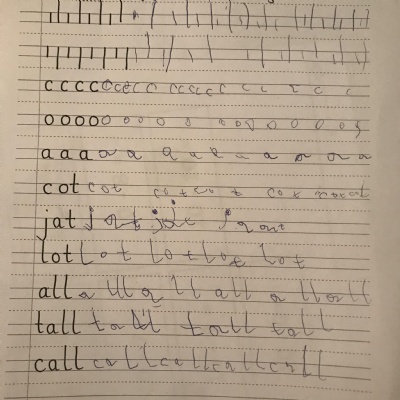 c c c c c c c c c c c c c c c c c
o o o o o o o o o o o o o o o
a a a a a a a a a a a a a
cot cot cot cot cot
jat jat
lot lot lot lot lot
all all all all all all
tall tall tall tall
call call call call call